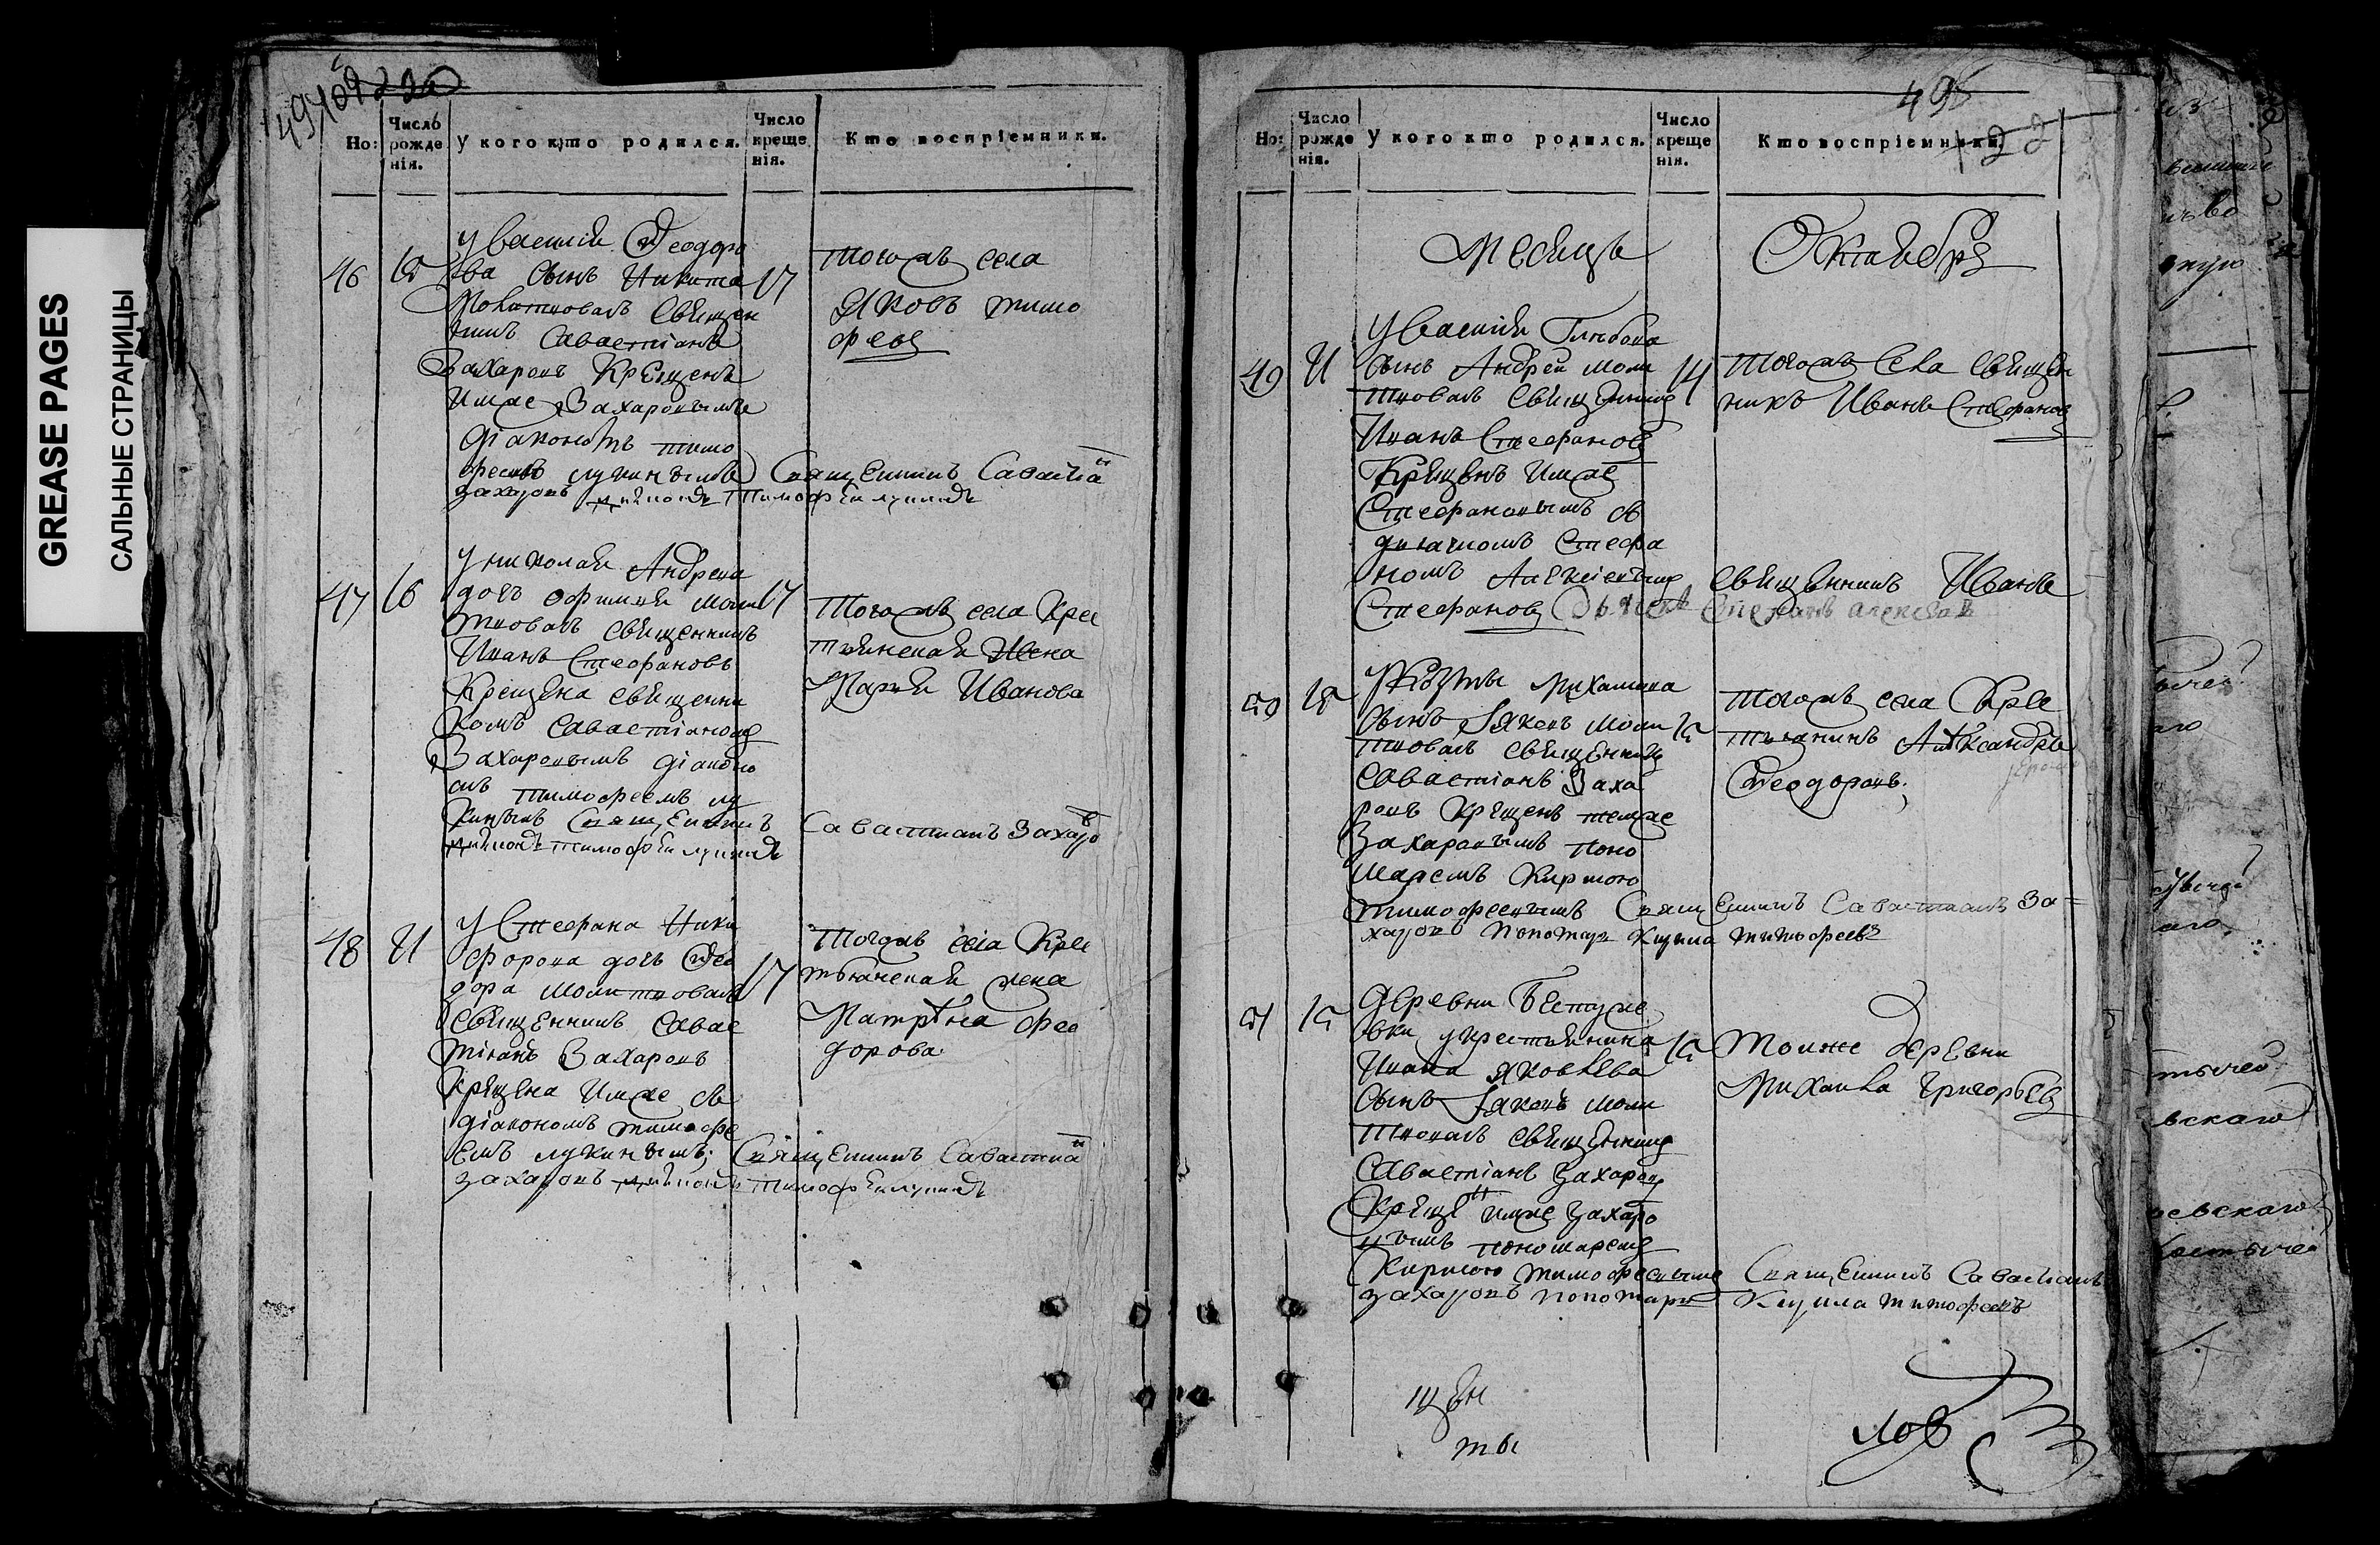 GREASE PAGES
САЛЬНЫЕ СТРАНИЦЫ
Но:
Число рожденія.
У кого кто родился.
Число крещенія.
Кто воспріемники.
46
у Василія Ѳеодоро
ва сынъ Никита
Молитвовалъ Священ
никъ Савастіанъ
Захаровъ Крещенъ
Имже Захаровымъ
діакономъ тимо
феемъ лукинымъ
17
тогожъ села
Яковъ тимо
феев
Священникъ Савастиа
захаровъ диаконъ Тимофей лукинъ
47
16
у николая Андреева
дочь Офимия моли
твовалъ священникъ
Иванъ Стефановъ
Крещена священни
комъ Савастіаном
Захаровымъ діаконо
мъ тимофеемъ лу
кинымъ Священникъ
Савастианъ Захаро
диаконъ тимофей лукинъ
17
Тогожъ села Крес
тьянская Жена
Марья Иванова
48
у Стефана Ники
форова дочь Ѳео
дора молитвовалъ
Священникъ Савас
тіанъ Захаровъ
Крещена Имже съ
діакономъ тимофе
емъ лукинымъ;
17
Тогожъ села Крес
тьянская жена
Матрена Фео
дорова
Священникъ Савастиа
захаровъ диаконъ тимофей лукинъ
495
Но:
Число рожденія.
У кого кто родился.
Число крещенія.
Кто воспріемники.
Месяцъ Октября
49
у Василія Глебова
сынъ Андрей моли
твовалъ священник
Иванъ Стефанов
Крещенъ Имже
Стефановымъ съ
дьячкомъ Стефа
номъ Алексіевым
14
Тогожъ села священ
никъ Иванъ Стефанов
священникъ Иванъ
Стефанов Дьячекъ Степанъ алексеев
50
у Козмы Михаилова
сынъ Іяковъ моли
твовалъ священник
Савастіанъ Заха
ровъ Крещенъ темже
Захаровымъ поно
маремъ Кирилою
тимофеевымъ
15
Тогожъ села Крес
тьянинъ Александръ
Ѳеодоровъ;
Священникъ Савастианъ За=
харовъ Пономарь Кирила тимофеевъ
51
15
деревни Бестуже
вки у крестьянина
Ивана Яковлева
сынъ Іяковъ моли
твовалъ священник
Савастіанъ Захаров
Крещен имже Захаро
вымъ пономарем
Кирилою тимофеевым
15
Тоиже деревни
Михаила Григорьев
Священникъ Савастианъ
захаровъ Пономарь Кирила тимофеевъ
щен
ты
лов